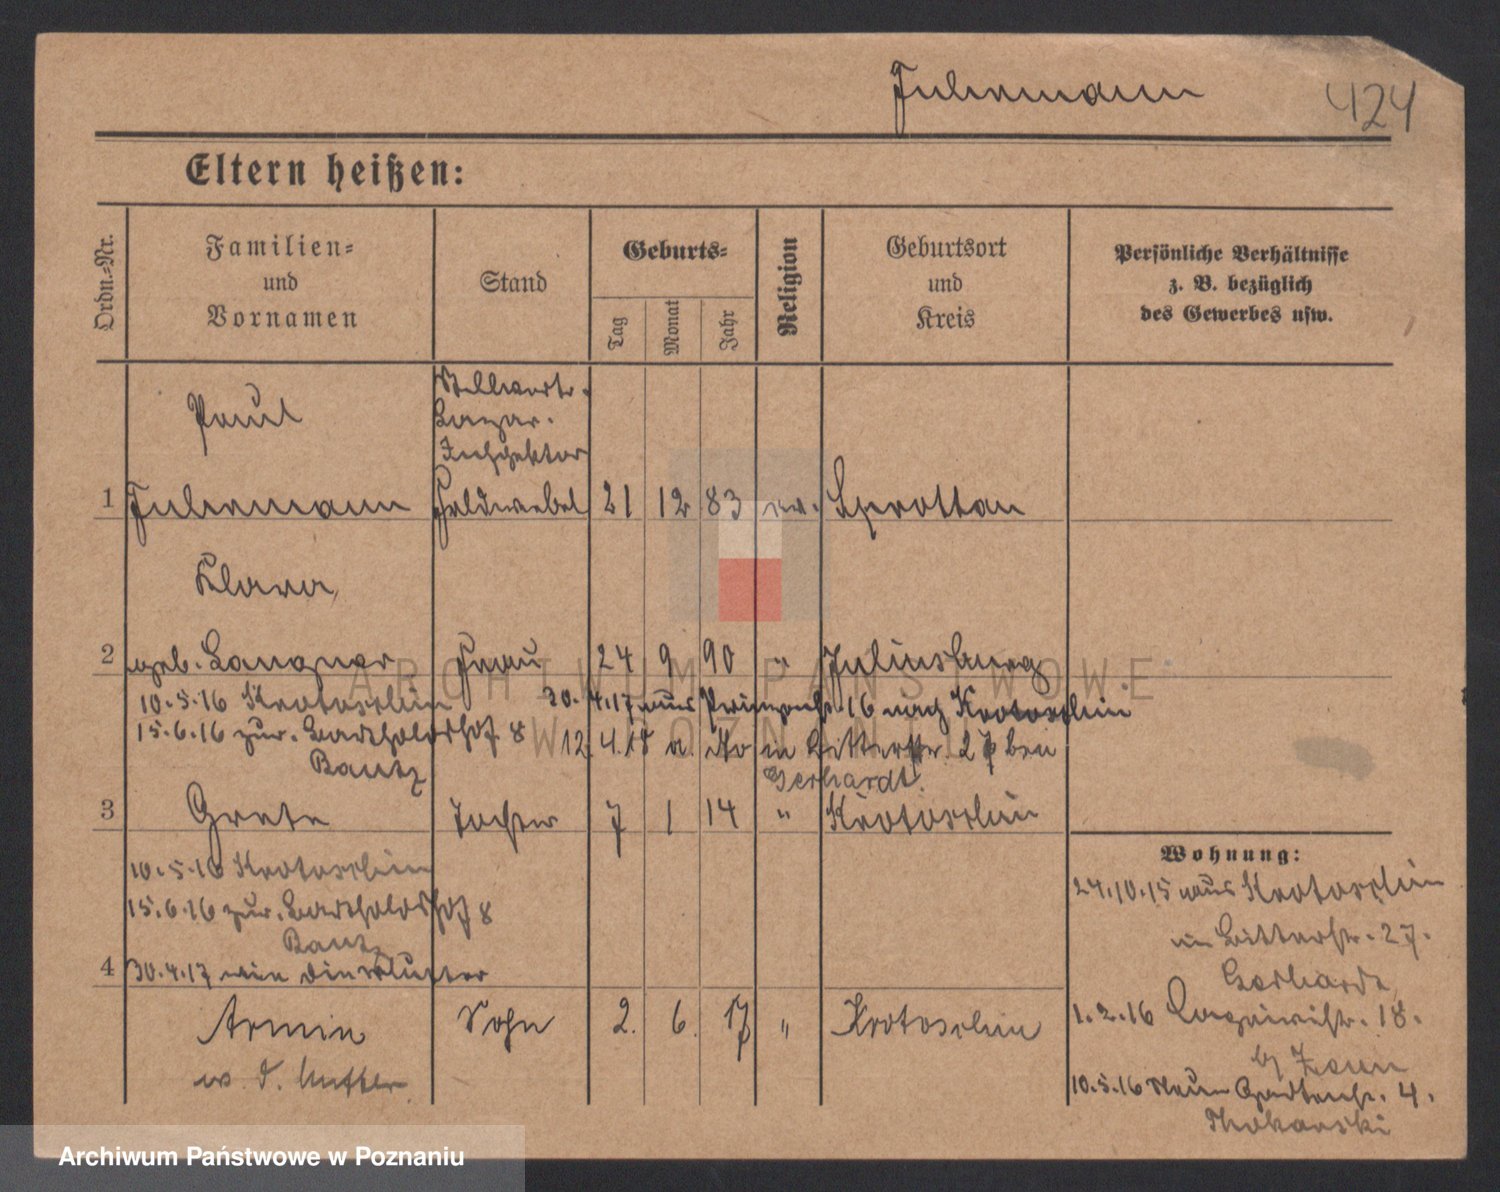 Fuhrmann
424
Eltern heißen:
Ordn.=Nr.
Familien=
und
Vornamen
Stand
Geburts=
Tag
Monat
Jahr
Religion
Geburtsort
und
Kreis
Persönliche Verhältnisse
z. B. bezüglich
des Gewerbes usw.
Paul
Stellvertr.
Lazar.
Inspektor
1 Fuhrmann Feldwebel 21 12 83 ev. Sprottau
Klara,
2 geb. Langner Frau 24 9 90 " Juliusburg
10.5.16 Krotoschin 20.4.17 aus 16 nach Krotoschin
15.6.16 zur. Bartholdshof 8 12.4.18 a. Kro in Ritterstr. 27 bei
Bautz Gerhardt.
3 Grete Tochter 7 1 14 " Krotoschin
10.5.16 Krotoschin
15.6.16 zur. Bartholdshof 8
Bautz
4 30.4.17 wie die Mutter
Armin Sohn 2. 6. 17 " Krotoschin
w. d. Mutter
Wohnung:
24.10.15 aus Krotoschin
in Ritterstr. 27.
Gerhardt,
1.2.16 18.
b/
10.5.16 Neue Gartenstr. 4.
ARCHIWUM PAŃSTWOWE
W POZNANIU
Archiwum Państwowe w Poznaniu